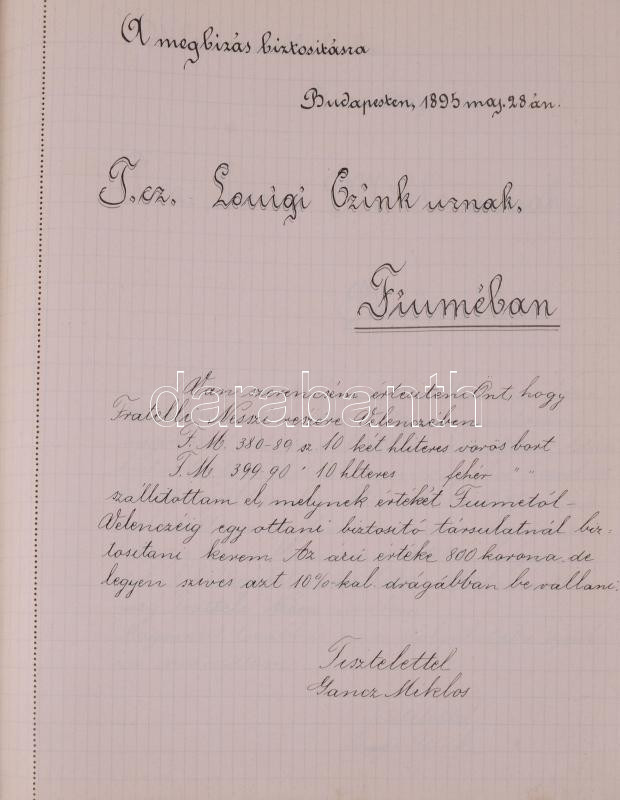 A megbizás biztositásra
Budapesten, 1895 maj. 28 án.
T. cz. Louigi Czink urnak,
Fiuméban
Van szerencsém értesiteni Önt, hogy
Fratelli részére Velenczében
F. M. 380-89 sz 10 két hliteres vörös bort
F. M. 399.90 " 10 hlteres fehér " "
szállitottam el, melynek értékét Fiumetól-
Velenczéig egy ottani biztositó társulatnál biz=
tositani kerem. Az arú ertéke 800 korona. de
legyen szives azt 10%-kal. drágábban be vallani.
Tisztelettel
Gancz Miklos
darabanth